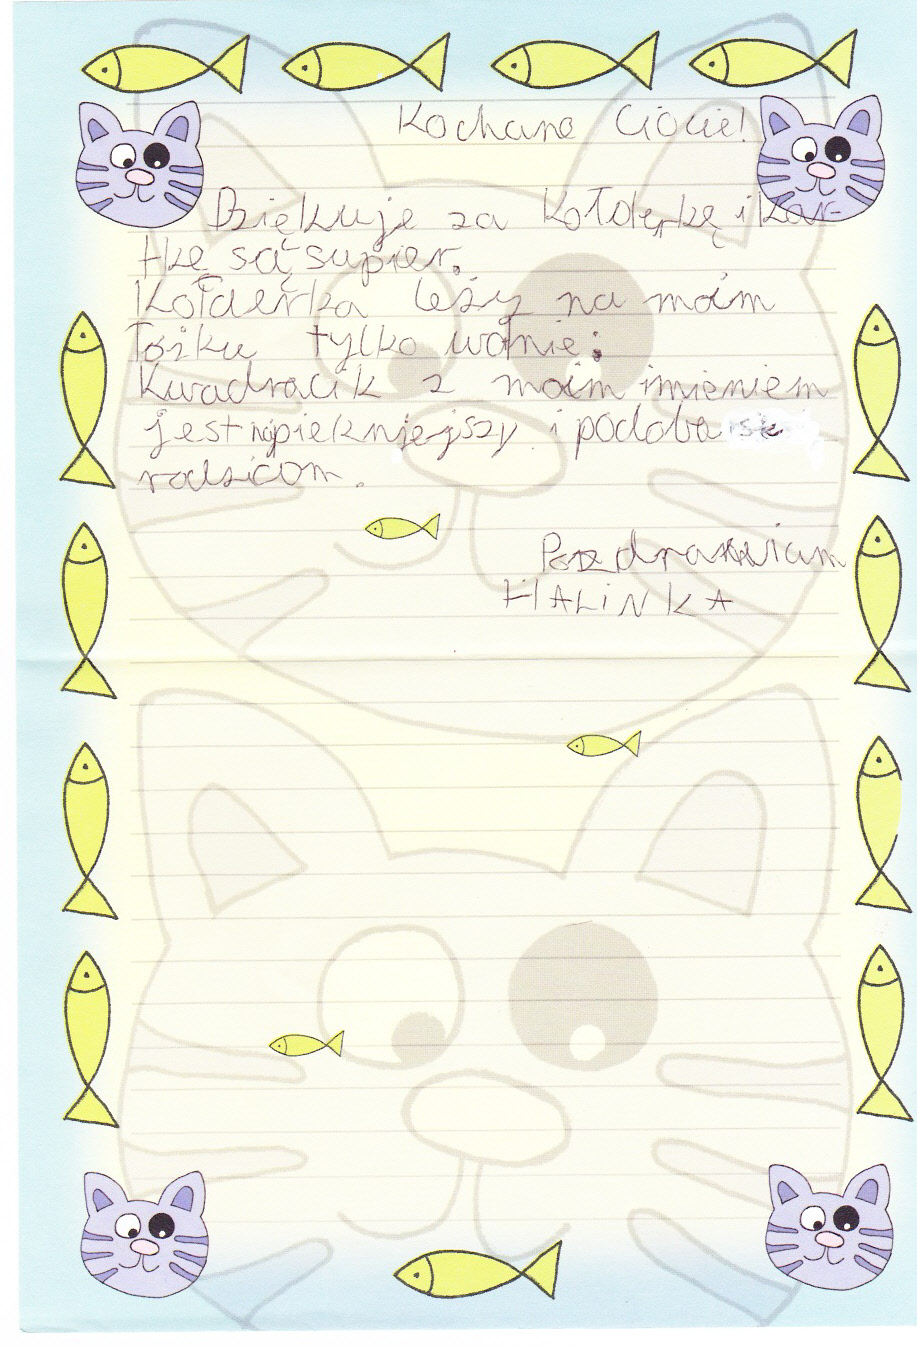 Kochane Ciocie!
Dziękuje za kołderkę i kar-
tkę są super.
Kołderka leży na moim
łóżku tylko wolnie:
Kwadracik z moim imieniem
jest napiękniejszy i podoba się
rodzicom.
Pozdrawiam
HALINKA